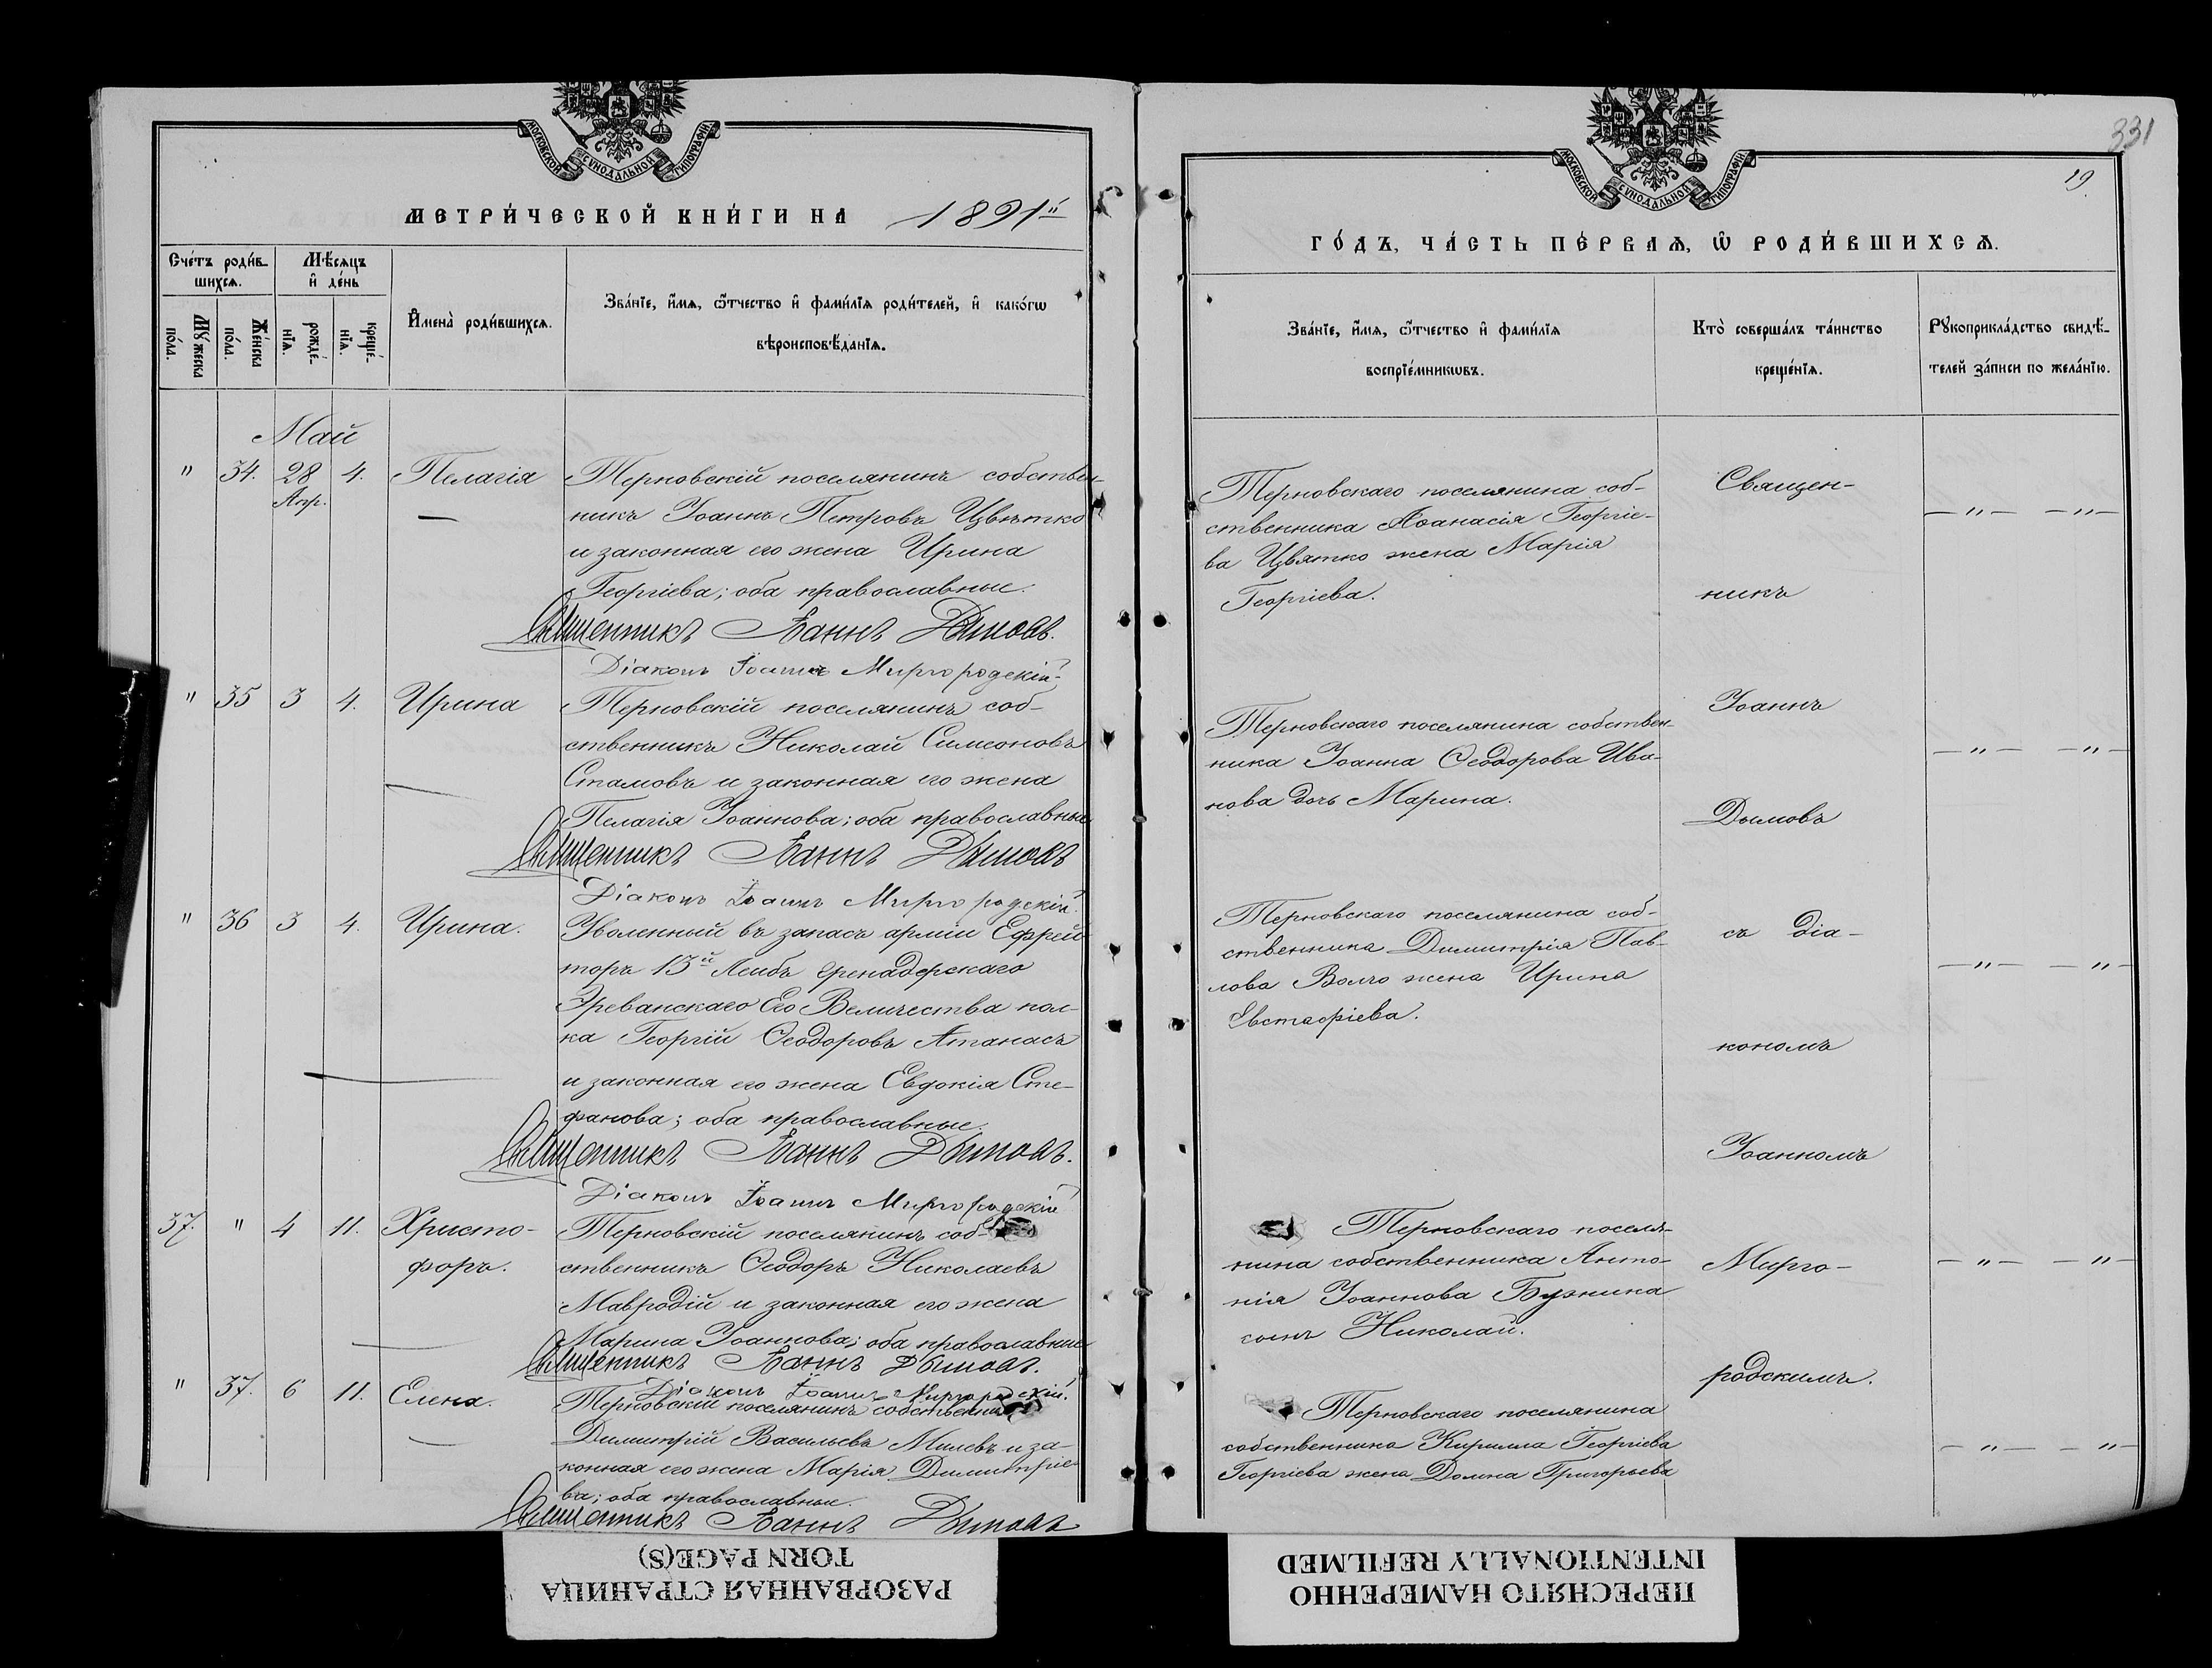 МОСКОВСКОЙ СѴНОДАЛЬНОЙ ТИПОГРАФІИ
МЕТРИ́ЧЕСКОЙ КНИ́ГИ НА 1891й
Сче́тъ роди́в-
шихсѧ.
Мꙋжеска
по́ла.
Же́нска
по́ла.
Мѣ́сѧцъ
и҆ де́нь
рожде́-
нїѧ.
креще́-
нїѧ.
И҆мена̀ роди́вшихсѧ.
Зва́нїе, и҆́мѧ, ѻ҆́тчество и҆ фами́лїѧ роди́телей, и҆ како́гѡ
вѣроисповѣ́данїѧ.
Май
" 34. 28 4. Пелагія
Апр.
Терновскій поселянинъ собствен-
никъ Іоаннъ Петровъ Цвѣтко
и законная его жена Ирина
Георгіева; оба православные.
Священникъ Іоаннъ Дымовъ.
Діаконъ Іоаннъ Миргородскій.
" 35 3 4. Ирина
Терновскій поселянинъ соб-
ственникъ Николай Симеоновъ
Стамовъ и законная его жена
Пелагія Іоаннова; оба православные
Священникъ Іоаннъ Дымовъ
Діаконъ Іоаннъ Миргородскій.
" 36 3 4. Ирина.
Уволенный въ запасъ арміи Ефрей-
торъ 13й Лейбъ гренадерскаго
Эреванскаго Его Величества пол-
ка Георгій Ѳеодоровъ Атанасъ
и законная его жена Евдокія Сте-
фанова; оба православные.
Священникъ Іоаннъ Дымовъ.
Діаконъ Іоаннъ Миргородскій
37. " 4 11. Христо-
форъ.
Терновскій поселянинъ соб-
ственникъ Ѳеодоръ Николаевъ
Мавродій и законная его жена
Марина Іоаннова; оба православные
Священникъ Іоаннъ Дымовъ.
Діаконъ Іоаннъ Миргородскій.
" 37. 6 11. Елена.
Терновскій поселянинъ собственникъ
Димитрій Васильевъ Милевъ и за-
конная его жена Марія Димитріе-
ва; оба православные.
Священникъ Іоаннъ Дымовъ
331
19.
МОСКОВСКОЙ СѴНОДАЛЬНОЙ ТИПОГРАФІИ
ГО́ДЪ, ЧА́СТЬ ПЕ́РВАѦ, Ѡ҆ РОДИ́ВШИХСѦ.
Зва́нїе, и҆́мѧ, ѻ҆́тчество и҆ фами́лїѧ
воспрїе́мникѡвъ.
Кто̀ соверша́лъ та́инство
креще́нїѧ.
Рꙋкоприкла́дство свидѣ́-
телей за́писи по жела́нїю.
Терновскаго поселянина соб-
ственника Аѳанасія Георгіе-
ва Цвятко жена Марія
Георгіева.
Терновскаго поселянина собствен-
ника Іоанна Ѳеодорова Ива-
нова дочь Марина.
Терновскаго поселянина соб-
ственника Димитрія Пав-
лова Волчо жена Ирина
Евстафіева.
Терновскаго поселя-
нина собственника Анто-
нія Іоаннова Бузника
сынъ Николай.
Терновскаго поселянина
собственника Кирилла Георгіева
Георгіева жена Домна Григорьева
Священ-
никъ
Іоаннъ
Дымовъ
съ діа-
кономъ
Іоанномъ
Мирго-
родскимъ.
— " — — " —
— " — — " —
— " — — " —
— " — — " —
— " — — " —
РАЗОРВАННАЯ СТРАНИЦА
TORN PAGE(S)
ПЕРЕСНЯТО НАМЕРЕННО
INTENTIONALLY REFILMED